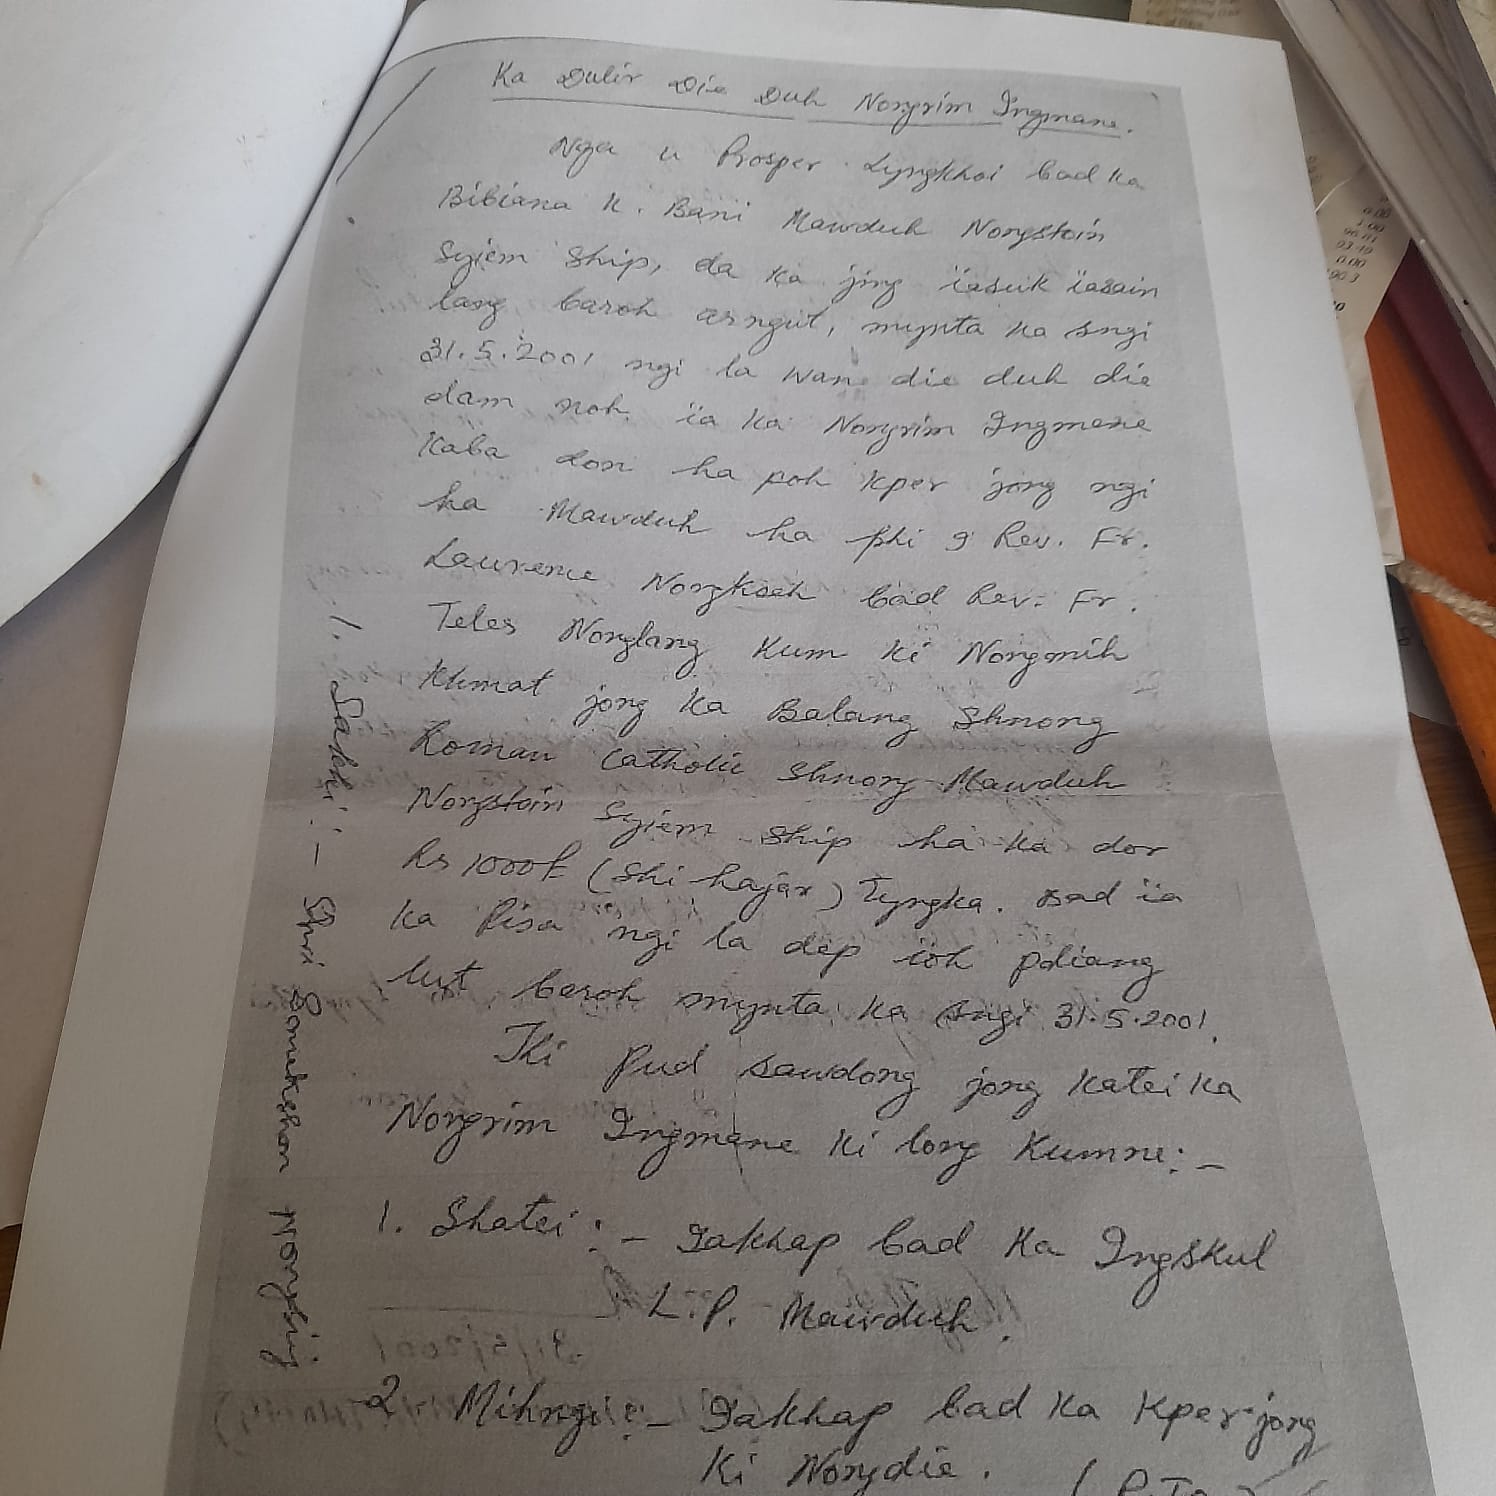 Ka Dulir Die Duh Nongrim Ingmane.
Nga u Prosper Lyngkhoi bad ka
Bibiana K. Bani Mawduh Nongstoin
Syiem Ship, da ka jing ïasuk ïasain
lang baroh arngut, mynta ka sngi
31.5.2001 ngi la wan die duh die
dam noh ïa ka Nongrim Ingmane
kaba don ha poh kper jong ngi
ha Mawduh ha phi Rev. Fr.
Laurence Nongkseh bad Rev. Fr.
Teles Nonglang kum ki Nongmih
khmat jong ka Balang Shnong
Roman Catholic Shnong Mawduh
Nongstoin Syiem Ship ha ka dor
Rs 1000/- (Shi hajar) Tyngka. Bad ïa
ka Pisa ngi la dep ïoh pdiang
lut baroh mynta ka sngi 31.5.2001.
Ki Pud sawdong jong katei ka
Nongrim Ingmane ki long kumne:-
1. Shatei:- Iakhap bad ka Ingskul
L.P. Mawduh.
2 Mihngi:- Iakhap bad ka kper jong
ki Nongdie. (P.T.o)
1. Sakhi:- Shri